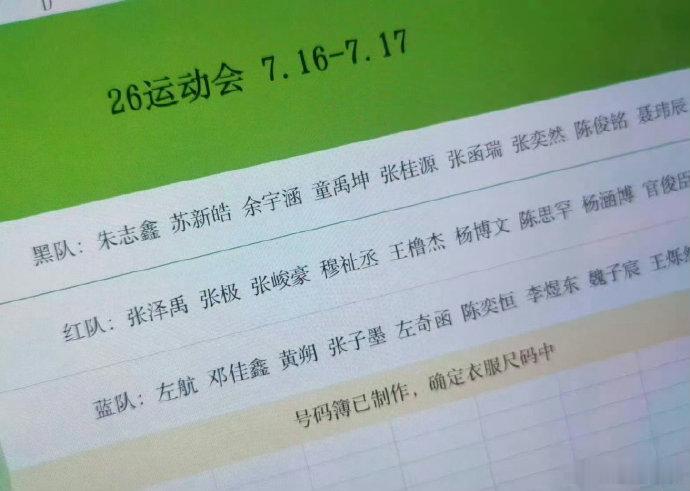 D
26运动会 7.16-7.17
黑队：朱志鑫 苏新皓 余宇涵 童禹坤 张桂源 张函瑞 张奕然 陈俊铭 聂玮辰
红队：张泽禹 张极 张峻豪 穆祉丞 王橹杰 杨博文 陈思罕 杨涵博 官俊臣
蓝队：左航 邓佳鑫 黄朔 张子墨 左奇函 陈奕恒 李煜东 魏子宸 王烁然
号码簿已制作，确定衣服尺码中